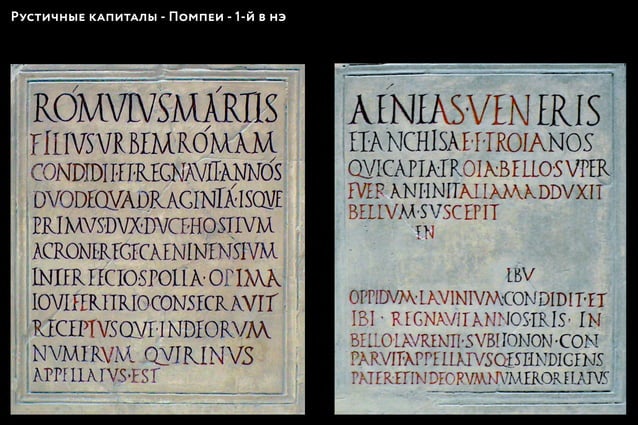 Рустичные капиталы - Помпеи - 1-й в нэ
RÓMVLVSMÁRTIS
FÍLIVSVRBEMRÓMAM
CONDIDIT·ET·REGNAVIT·ANNÓS
DVODEQVADRAGINTÁ·ISQVE
PRIMVSDVX·DVCE·HOSTIVM
ACRONEREGECAENINENSIVM
INTERFECTOSPOLIA·OPIMA
IOVIFERETRIOCONSECRAVIT
RECEPTVSQVEINDEORVM
NVMERVM QVIRINVS
APPELLATVS·EST
AÉNEASVENERIS
ETANCHISAE·F·TROIANOS
QVICAPTATROIABELLO·SVPER
FVERANT·INITALIAMADDVXIT
BELLVM·SVSCEPIT
EN
EBV
OPPIDVM·LAVINIVM·CONDIDIT·ET
IBI REGNAVITANNOSTRIS IN
BELLO·LAVRENTI·SVBITONON·CON
PARVITAPPELLATVSQ·ESTINDIGENS
PATERETINDEORVMNVMERORELATVS